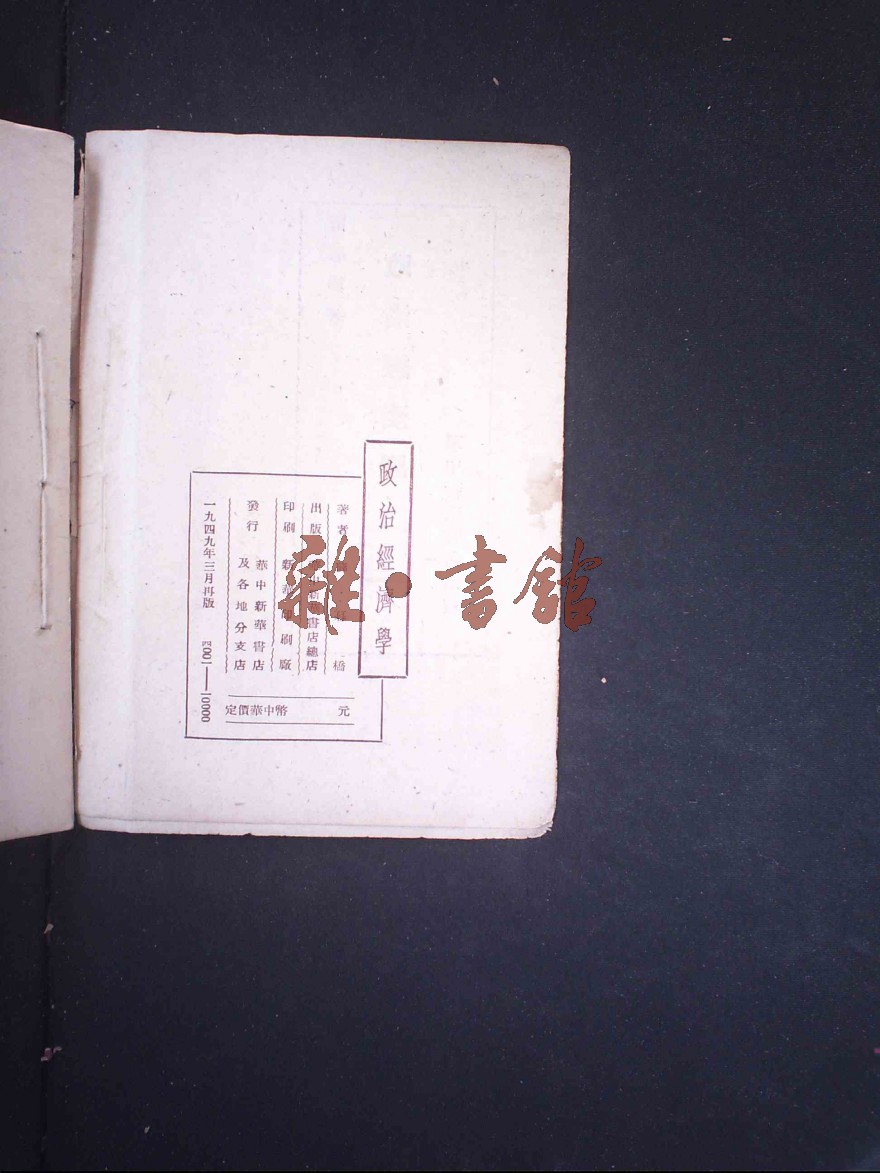 政治經濟學
著者 橋
出版 新華書店總店
印刷 新華印刷廠
發行 華中新華書店
及各地分支店
一九四九年三月再版 4001—10000
定價華中幣 元
雜·書館